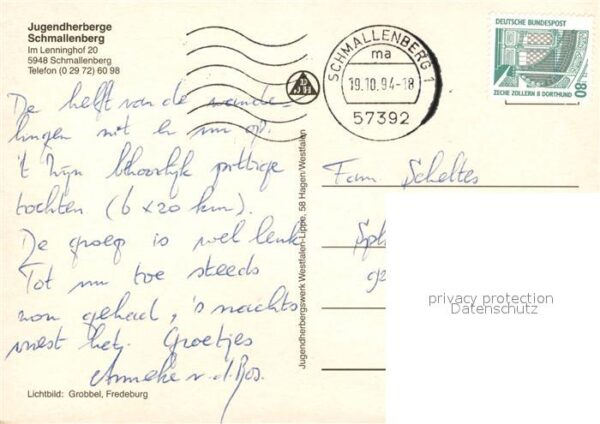 Jugendherberge
Schmallenberg
Im Lenninghof 20
5948 Schmallenberg
Telefon (0 29 72) 60 98
De helft van de wande-
lingen zit er nu op.
't Zijn behoorlijk pittige
tochten (6 x 20 km).
De groep is wel leuk
Tot nu toe steeds
zon gehad, 's nachts
vriest het. Groetjes
Anneke v.d. Bos.
Lichtbild: Grobbel, Fredeburg
Jugendherbergswerk Westfalen-Lippe, 58 Hagen/Westfalen
DJH
SCHMALLENBERG 1
ma
19.10.94-18
57392
DEUTSCHE BUNDESPOST
80
ZECHE ZOLLERN II DORTMUND
Fam. Scheltes
privacy protection
Datenschutz